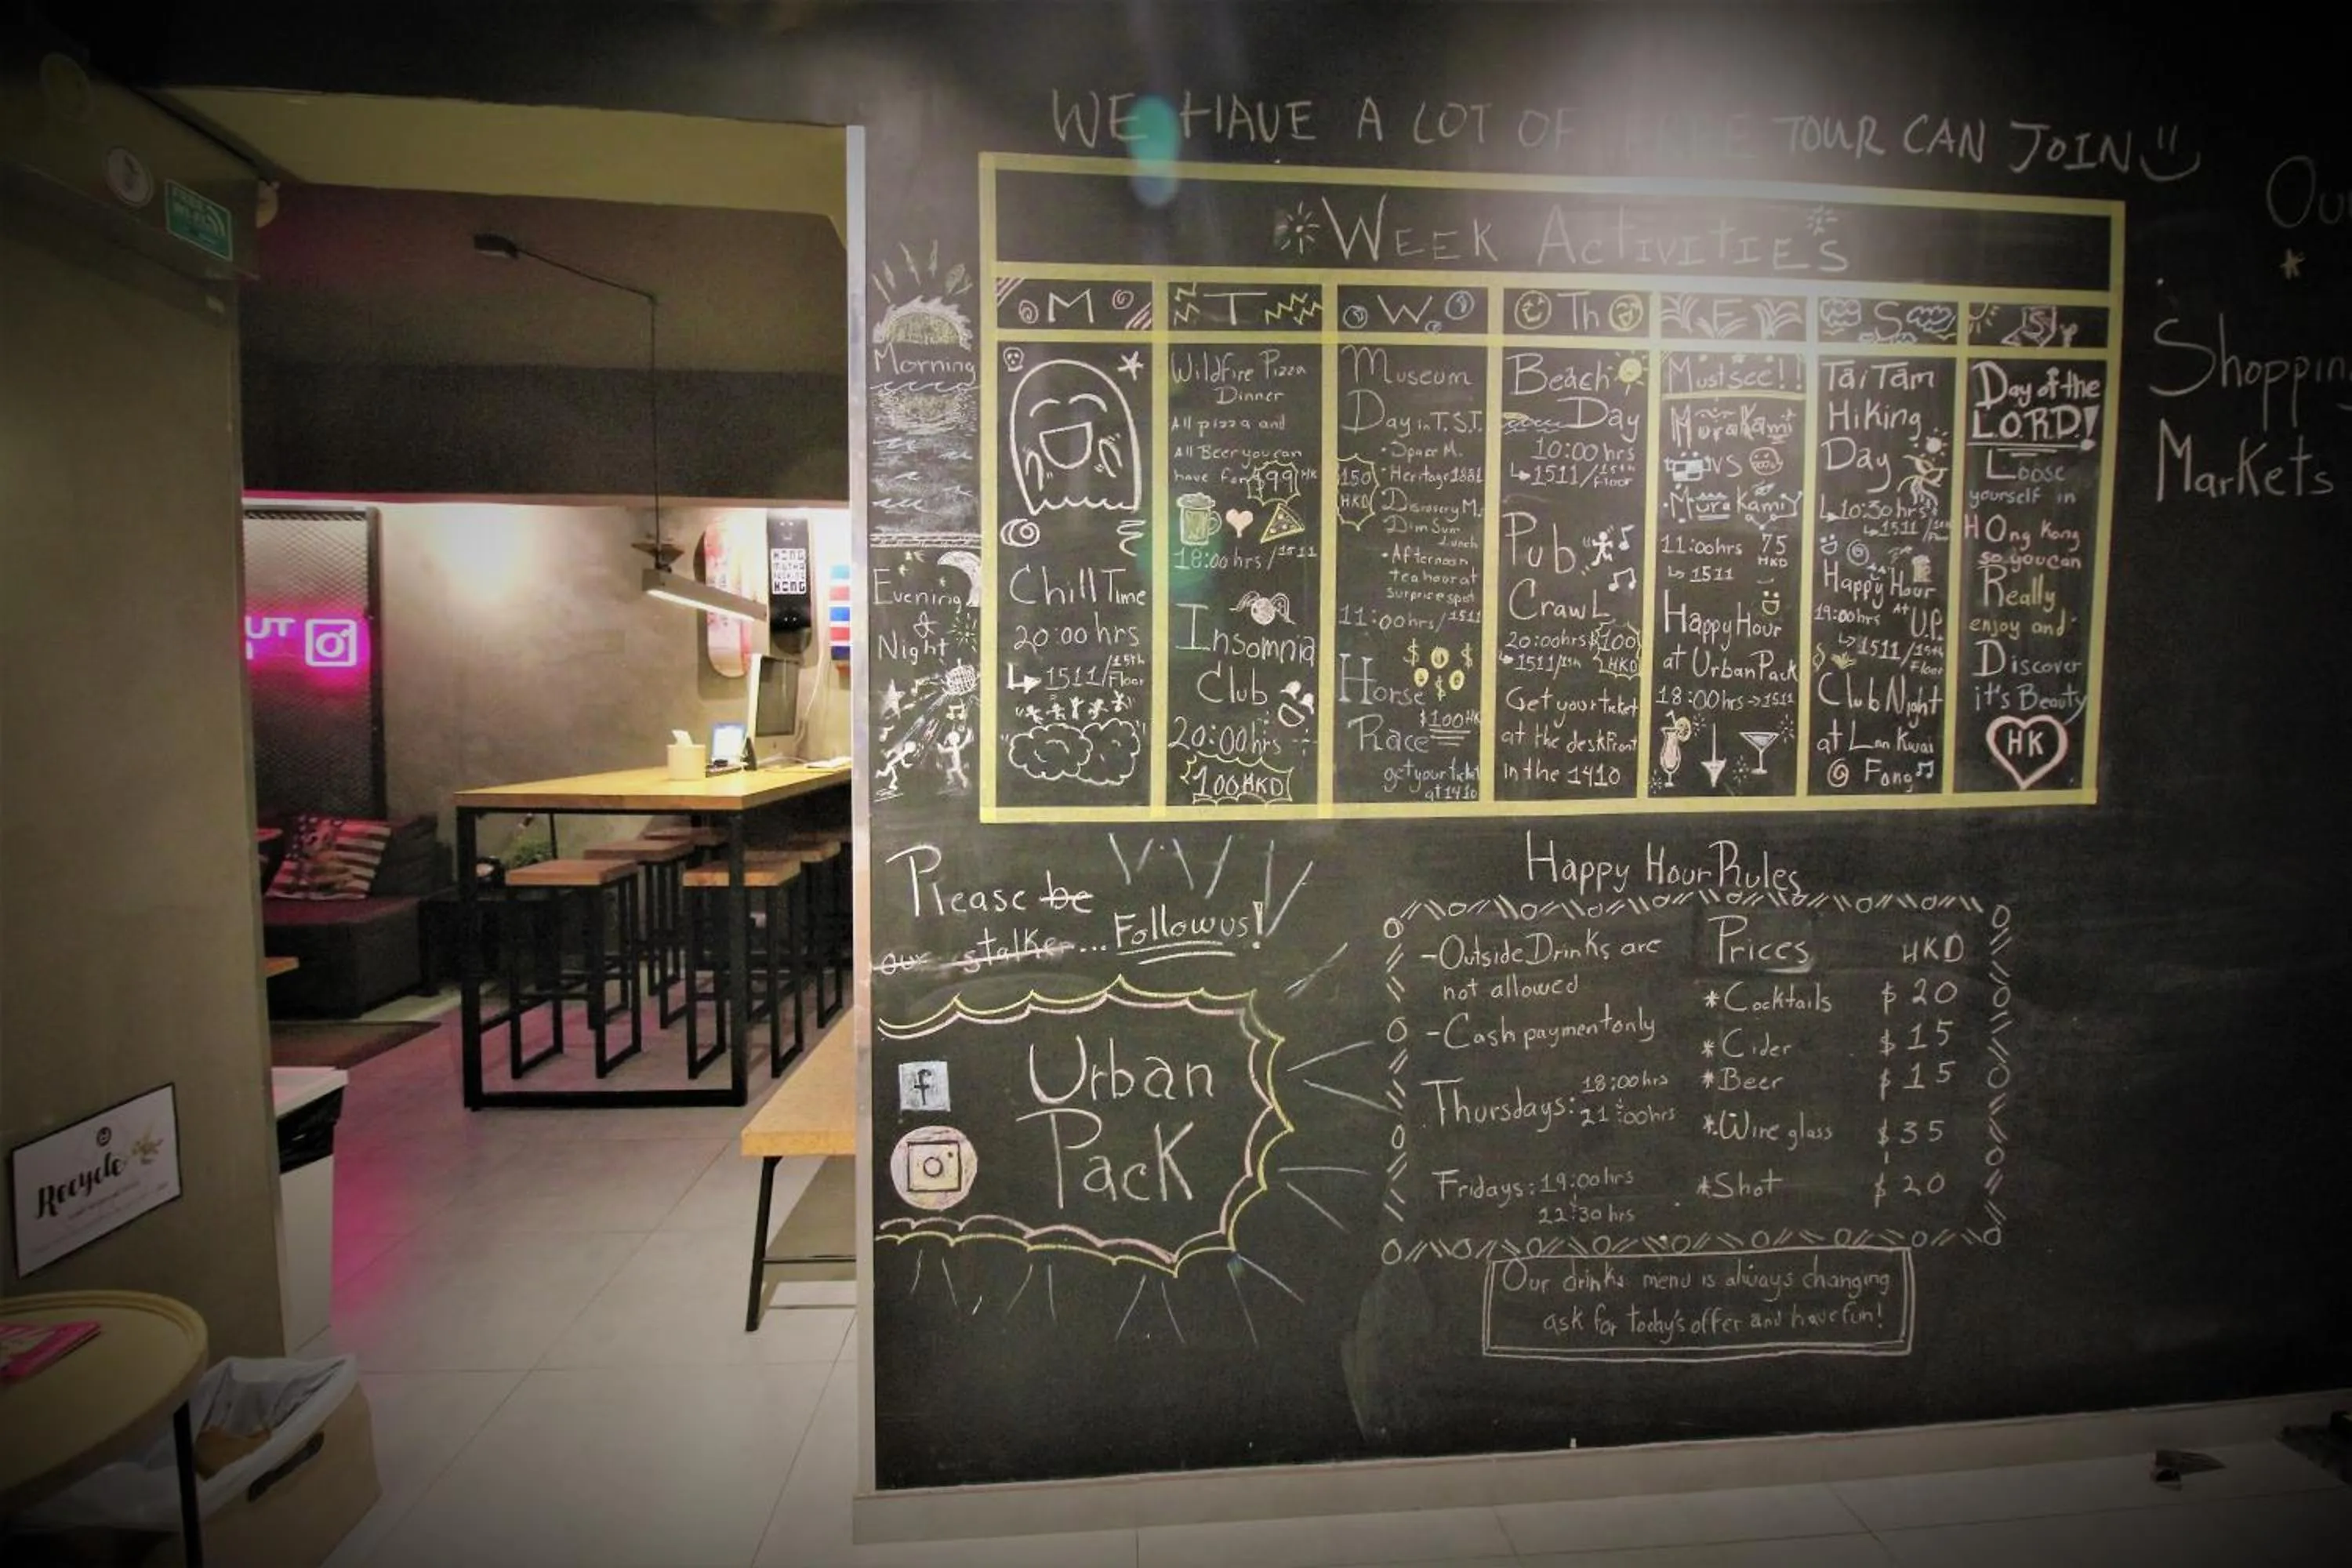 WE HAVE A LOT OF FREE TOUR CAN JOIN
WEEK ACTIVITIES
M
T
W
Th
F
S
S
Morning
Evening
&
Night
Chill Time
20:00 hrs
1511/15th
Floor
Wildfire Pizza
Dinner
All pizza and
All Beer you can
have for $99 HK
18:00 hrs/1511
Insomnia
Club
20:00hrs
100 HKD
Museum
Day in T.S.T.
• Space M.
150
HKD
• Heritage 1881
Discovery M.
Dim Sum
Lunch
• Afternoon
tea hour at
surprise spot
11:00hrs/1511
Horse
$100 HK
Race
get your ticket
at 1410
Beach
Day
10:00 hrs
1511/15th
Floor
Pub
Crawl
20:00hrs $100
HKD
1511/15th
Get your ticket
at the desk front
in the 1410
Must see!!
Murakami
VS
Murakami
11:00hrs 75
HKD
1511
Happy Hour
at Urban Pack
18:00hrs→1511
Tai Tam
Hiking
Day
10:30 hrs
1511/15th
Floor
Happy Hour
19:00hrs AT U.P.
1511/15th
Floor
Club Night
at Lan Kwai
Fong
Day of the
LORD!
Loose
yourself in
HOng Kong
so you can
Really
enjoy and
Discover
it's Beauty
HK
Shopping
Markets
Please be
our stalker... Follow us!
f
Urban
Pack
Happy Hour Rules
-Outside Drinks are
not allowed
-Cash payment only
Thursdays: 18:00hrs
21:00hrs
Fridays: 19:00hrs
22:30 hrs
Prices HKD
*Cocktails $ 20
*Cider $ 15
*Beer $ 15
*Wine glass $ 35
*Shot $ 20
Our drinks menu is always changing
ask for today's offer and have fun!
UT
HONG
KONG
Recycle